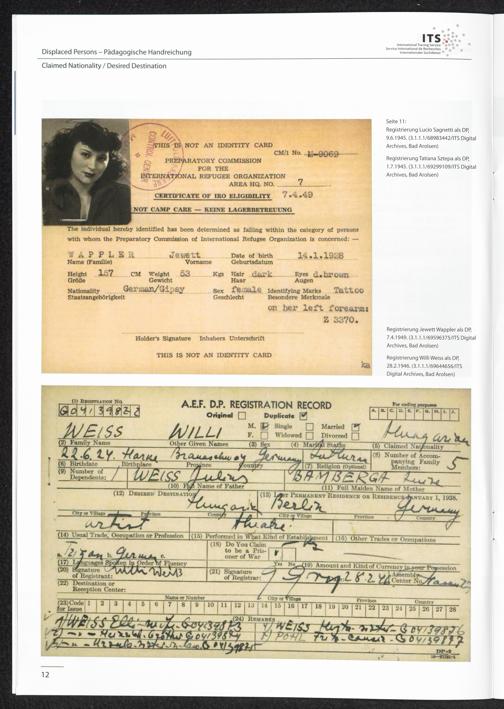 Displaced Persons – Pädagogische Handreichung
ITS
International Tracing Service
Service International de Recherches
Internationaler Suchdienst
Claimed Nationality / Desired Destination
Seite 11:
Registrierung Lucio Sagnetti als DP,
9.6.1945. (3.1.1.1/68983442/ITS Digital
Archives, Bad Arolsen)
Registrierung Tatiana Sztepa als DP,
1.7.1945. (3.1.1.1/69299109/ITS Digital
Archives, Bad Arolsen)
THIS IS NOT AN IDENTITY CARD
CM/1 No. M-9069
PREPARATORY COMMISSION
FOR THE
INTERNATIONAL REFUGEE ORGANIZATION
AREA HQ. NO. 7
CERTIFICATE OF IRO ELIGIBILITY 7.4.49
NOT CAMP CARE — KEINE LAGERBETREUUNG
The individual hereby identified has been determined as falling within the category of persons
with whom the Preparatory Commission of International Refugee Organization is concerned:—
WAPPLER Jewett Date of birth 14.1.1928
Name (Familie) Vorname Geburtsdatum
Height 157 CM Weight 53 Kgs Hair dark Eyes d.brown
Größe Gewicht Haar Augen
Nationality German/Gipsy Sex female Identifying Marks Tattoo
Staatsangehörigkeit Geschlecht Besondere Merkmale
on her left forearm:
Z 3370.
Holder's Signature Inhabers Unterschrift
THIS IS NOT AN IDENTITY CARD
Registrierung Jewett Wappler als DP,
7.4.1949. (3.1.1.1/69596375/ITS Digital
Archives, Bad Arolsen)
Registrierung Willi Weiss als DP,
28.2.1946. (3.1.1.1/69644656/ITS
Digital Archives, Bad Arolsen)
(1) REGISTRATION NO.
A.E.F. D.P. REGISTRATION RECORD
For coding purposes
Original Duplicate
A. B. C. D. E. F. G. H. I. J.
M. Single Married
F. Widowed Divorced
WEISS WILLI Hungarian
(2) Family Name Other Given Names (3) Sex (4) Marital Status (5) Claimed Nationality
22.6.24. Braunschweig Germany Lutheran
(6) Birthdate Birthplace Province Country (7) Religion (Optional) (8) Number of Accompanying Family Members: 5
(9) Number of Dependents: WEISS Julius BAMBERGA
(10) Full Name of Father (11) Full Maiden Name of Mother
(12) DESIRED DESTINATION (13) LAST PERMANENT RESIDENCE OR RESIDENCE JANUARY 1, 1938.
Hungary Berlin Germany
City or Village Province Country City or Village Province Country
artist theatre
(14) Usual Trade, Occupation or Profession (15) Performed in What Kind of Establishment (16) Other Trades or Occupations
German
(17) Languages Spoken in Order of Fluency (18) Do You Claim to be a Prisoner of War Yes No (19) Amount and Kind of Currency in your Possession
(20) Signature of Registrant: (21) Signature of Registrar: 28.2.46 Assembly Center No.
(22) Destination or Reception Center:
Name or Number City or Village Province Country
(23) Code for Issue 1 2 3 4 5 6 7 8 9 10 11 12 13 14 15 16 17 18 19 20 21 22 23 24 25 26 27 28
(24) REMARKS
DP-2
12